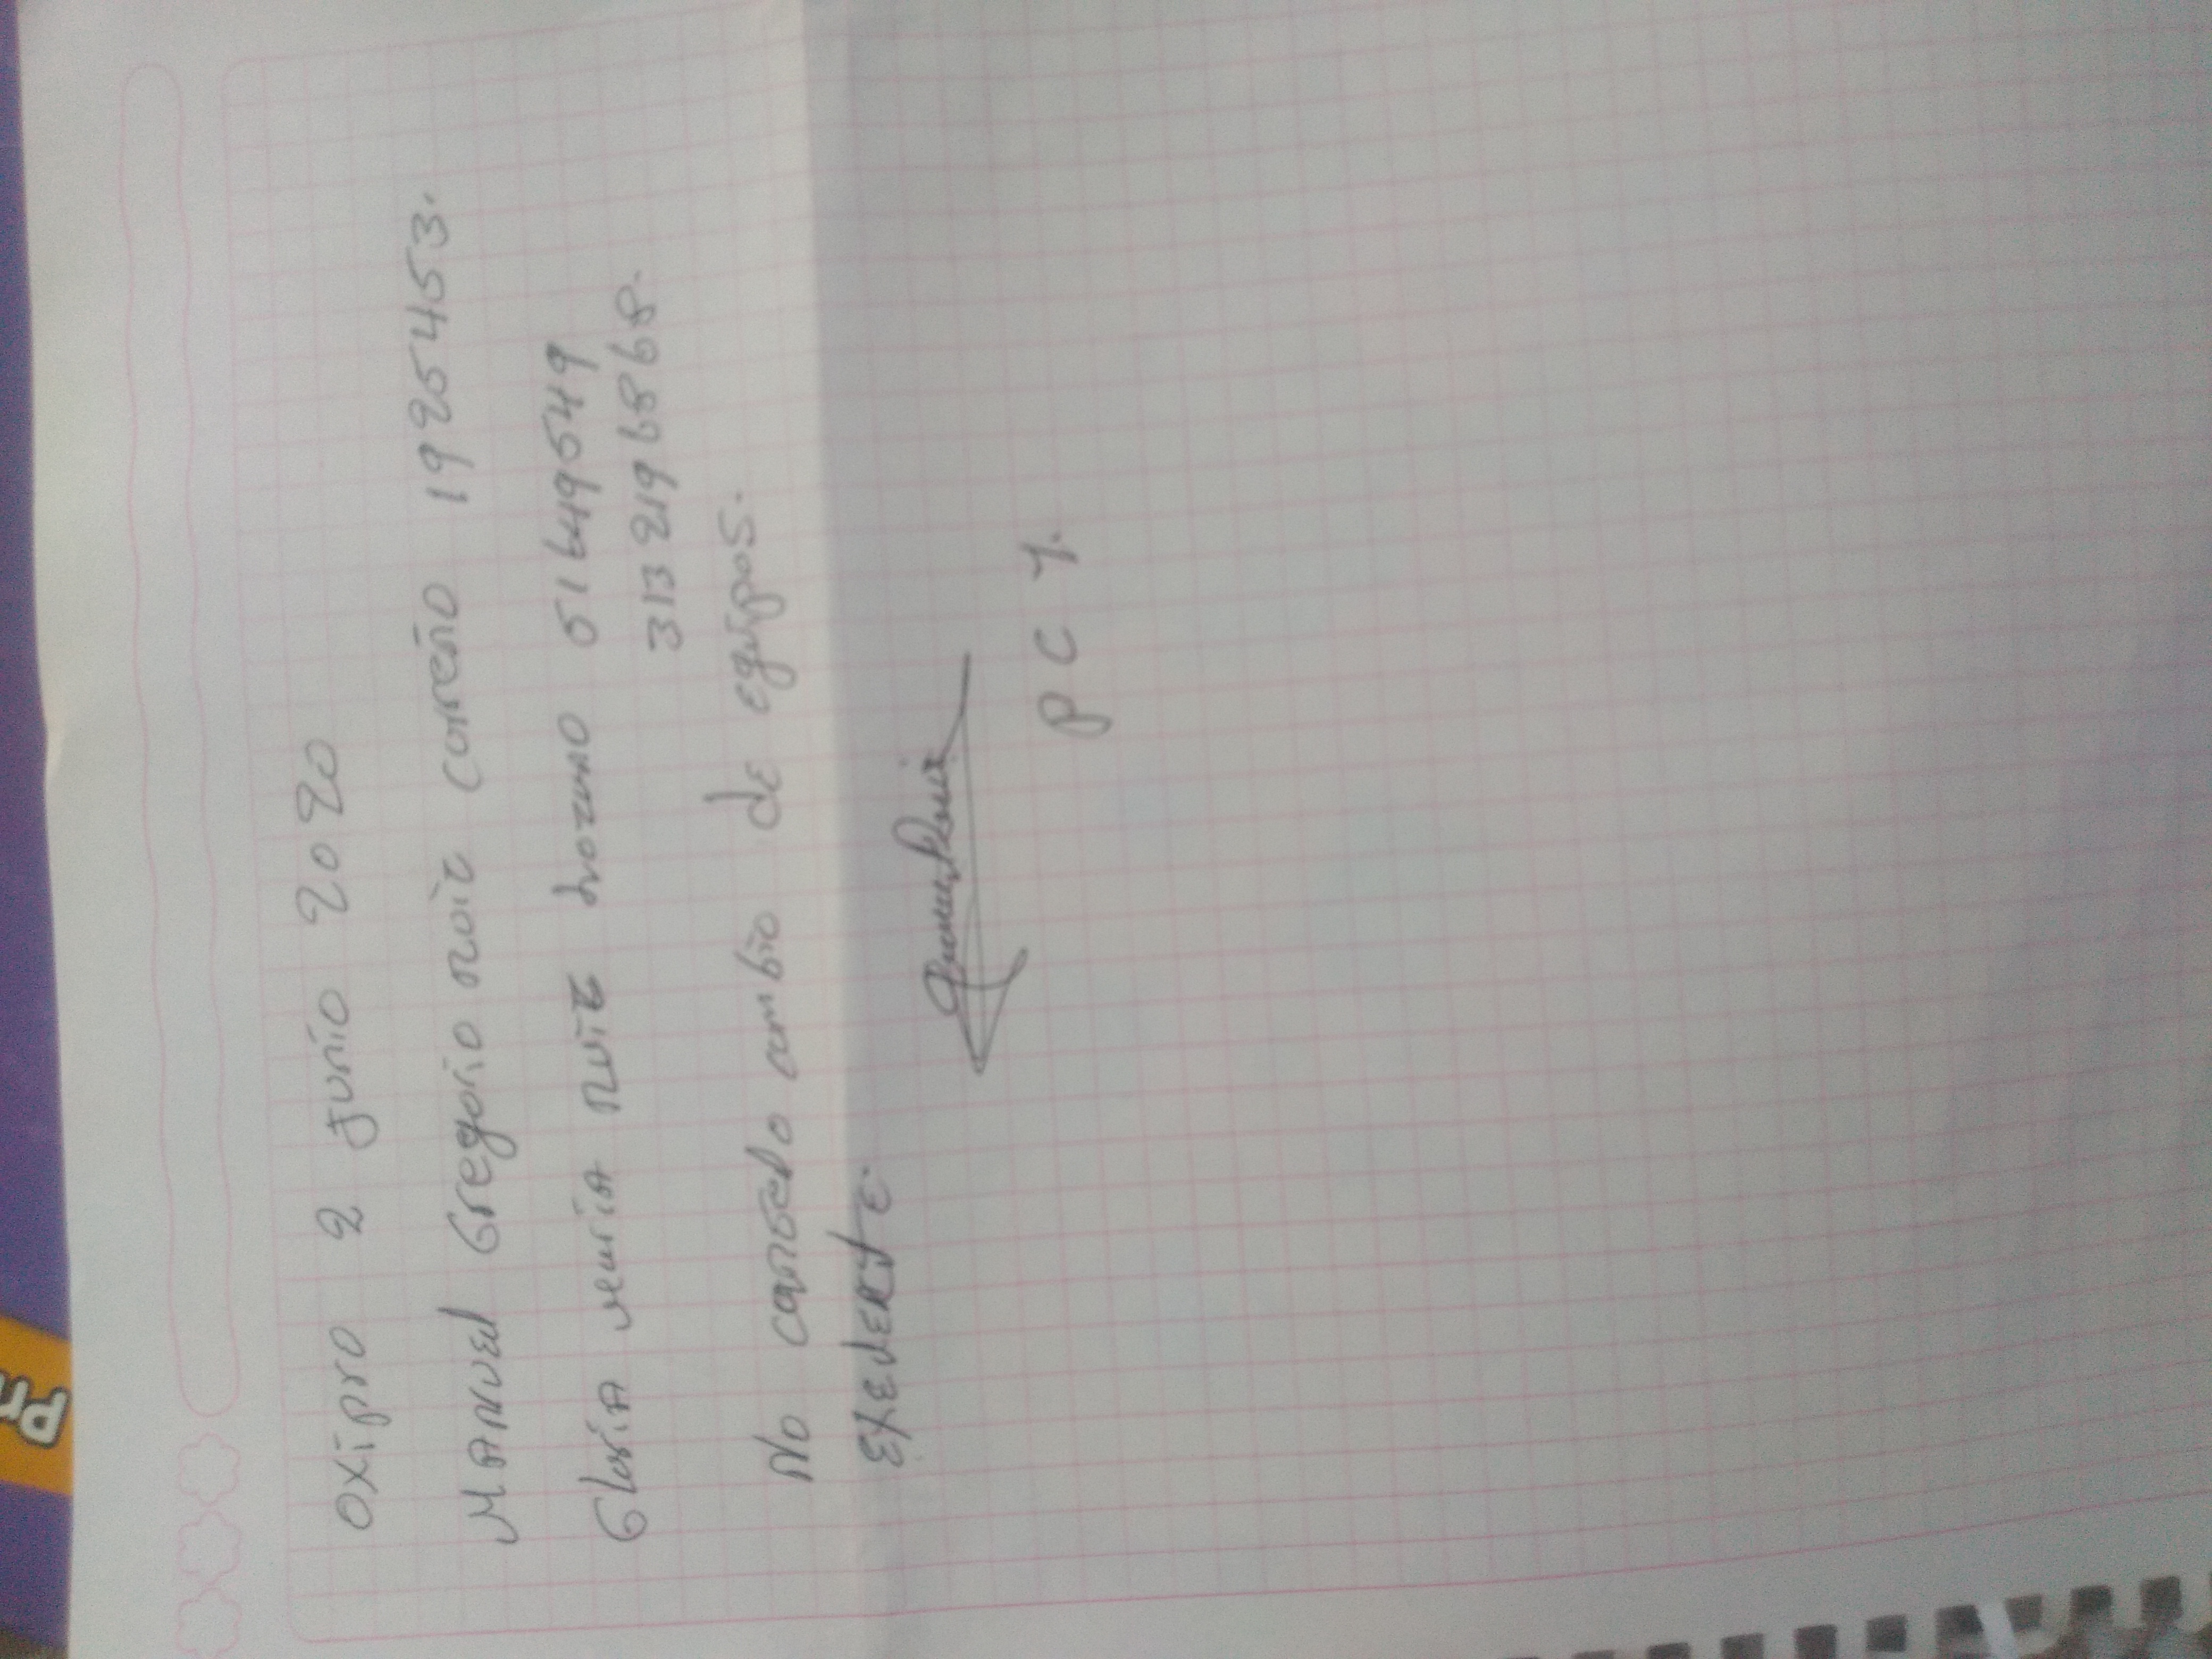 oxipro 2 Junio 2020
Manuel Gregorio Ruiz Carreño 19254153.
Gloria Maria Ruiz Lozano 51649549
313 219 6868.
No cancelo cambio de equipos.
Exelente.
P C Y.
Pr